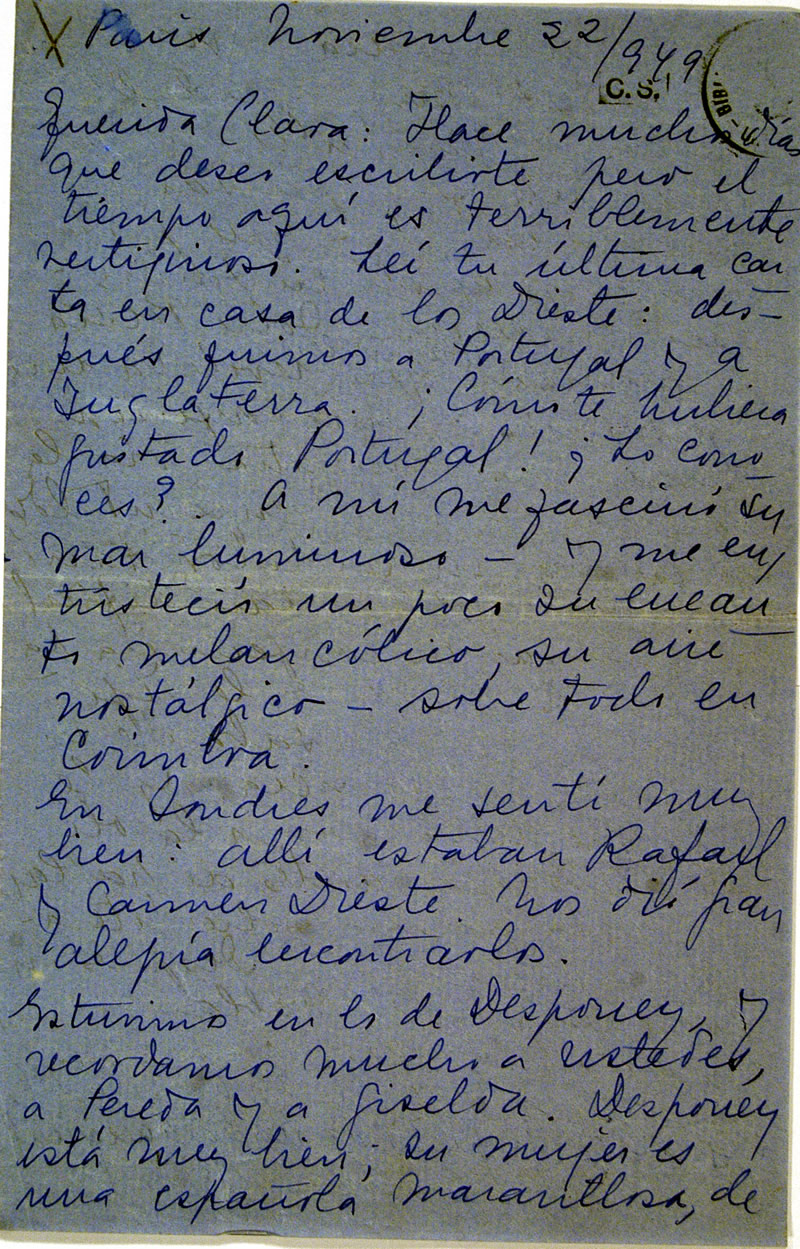 X Paris Noviembre 22/949
C.S.
BIBL
Querida Clara: Hace muchos días
que deseo escribirte pero el
tiempo aquí es terriblemente
vertiginoso. Leí tu última car
ta en casa de los Dieste: des-
pués fuimos a Portugal y a
Inglaterra. ¡Cómo te hubiera
gustado Portugal! ¿Lo cono
ces? A mí me fascinó su
mar luminoso - y me en
tristeció un poco su encan
to melancólico, su aire
nostálgico - sobre todo en
Coimbra.
En Londres me sentí muy
bien: allí estaban Rafael
y Carmen Dieste. Nos dió gran
alegría encontrarlos.
Estuvimos en lo de Despouey, y
recordamos mucho a ustedes,
a Pereda y a Giselda. Despouey
está muy bien; su mujer es
una española maravillosa, de